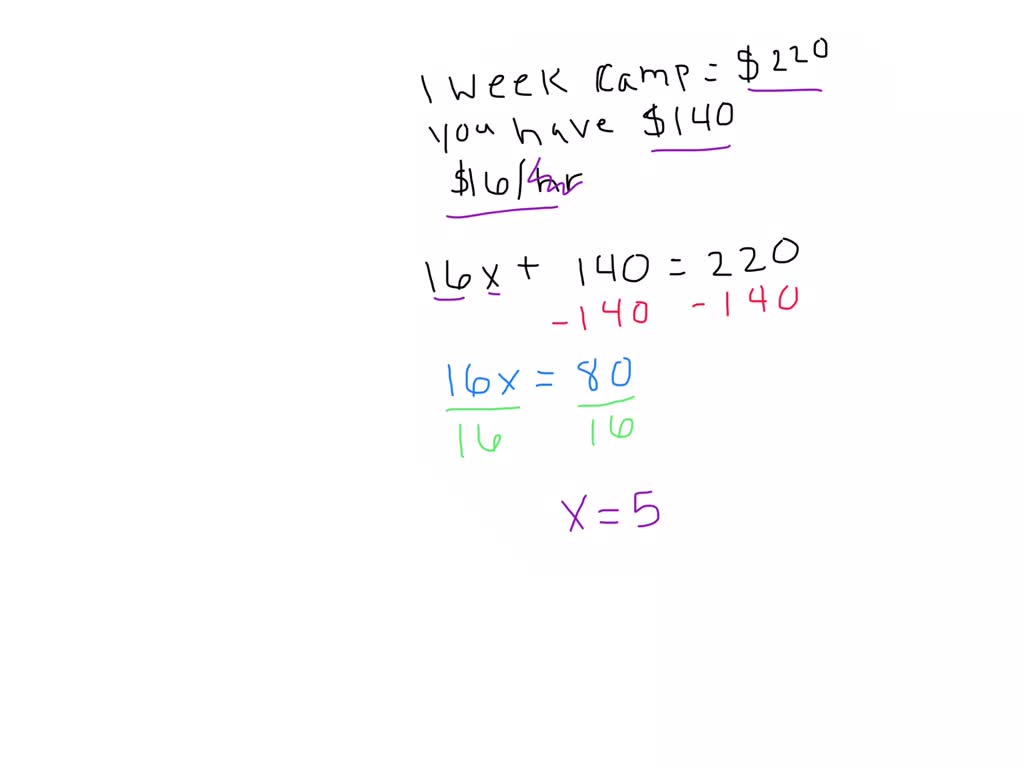 1 week camp = $220
you have $140
$16/hr
16x + 140 = 220
-140 -140
16x = 80
16 16
x = 5